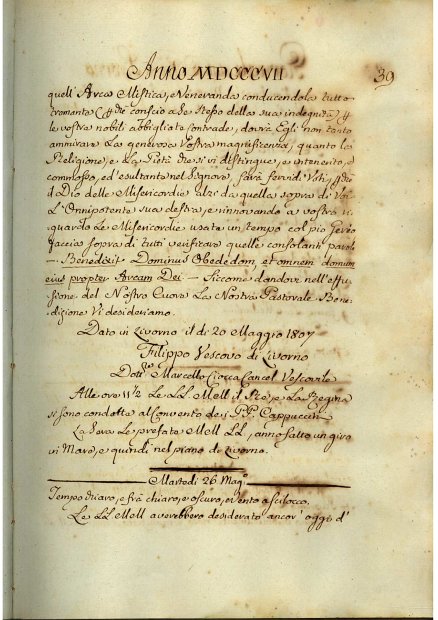 Anno MDCCCVII
39
quell' Arca Mistica, e Veneranda conducendola tutto
tremante perchè conscio a se stesso della sua indegnità per
le vostre nobili abbigliate contrade, dovrà Egli non tanto
ammirare la generosa Vostra magnificenza, quanto la
Religione, e la Pietà che si vi distingue, e intenerito, e
commosso, ed esultante nel Signore, farà fervidi Voti, perchè
il Dio delle Misericordie alzi da quella sopra di Voi
L'Onnipotente sua destra, e rinnovando a vostro ri-
guardo le Misericordie usate un tempo col pio Geteo
faccia sopra di tutti verificare quelle consolanti parole
— Benedixit Dominus Obededom, et omnem domum
eius propter Arcam Dei — Siccome dandovi nell'effu-
sione del Nostro Cuore la Nostra Pastorale Bene-
dizione Vi desideriamo.
Dato in Livorno il dì 20 Maggio 1807
Filippo Vescovo di Livorno
Dott. Marcello Ciocca Cancel. Vescovile
Alle ore 11½ Le LL. MM. il Re, e La Regina
si sono condotte al Convento de' PP. Cappuccini
La Sera Le prefate MM. LL, anno fatto un giro
in Mare, e quindi nel piano di Livorno.
Martedì 26 Mag.º
Tempo chiaro, e frà chiaro, e oscuro, e vento a scilocco.
Le LL MM averebbero desiderato ancor' oggi d'